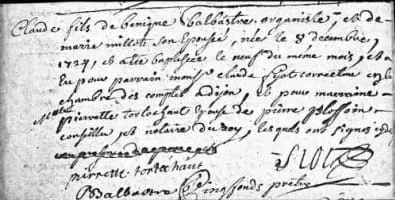 Claude fils de benigne balbastre organiste, et de
marie millot son Epouse, née le 8 decembre,
1724, et a été baptisée le neuf du même mois, et a
Eu pour parrain mons. claude correcteur en la
chambre des comptes a dijon, et pour marraine
pierrette tortochaut Epouse de pierre
conseiller et notaire du roy, lesquels ont signés
pierrette tortochaut
Balbastre prêtre